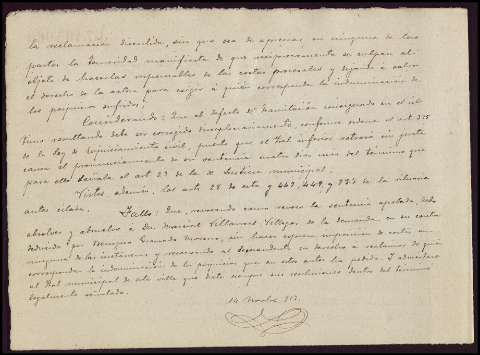 la reclamación discutida, sin que sea de apreciar en ninguna de las
partes la temeridad manifiesta de que recíprocamente se culpan al
objeto de hacerlas responsables de las costas procesales y dejando á salvo
el derecho de la actora para exigir á quien corresponda la indemnización de
los perjuicios sufridos;
Considerando: Que el defecto de tramitación consignado en el úl-
timo resultando debe ser corregido disciplinariamente, conforme ordena el art. 375
de la ley de Enjuiciamiento civil, puesto que el Tral inferior retrasó sin justa
causa el pronunciamiento de su sentencia cuatro días más del término que
para ello señala el art 23 de la de Justicia municipal.
Vistos además, los arts 28 de esta y 447, 449, y 733 de la rituaria
antes citada. Fallo: Que, revocando como revoco la sentencia apelada, debo
absolver y absuelvo á Dn Villarroel Villegas de la demanda en su contra
deducida por Granado Moreno, sin hacer expresa imposición de costas en
ninguna de las instancias y reservando al demandante su derecho á reclamar de quien
corresponda la indemnización de los perjuicios que en estos autos ha pedido. Y adviértase
al Tral municipal de esta villa que dicte siempre sus resoluciones dentro del término
legalmente señalado.
14 Novbre 913.